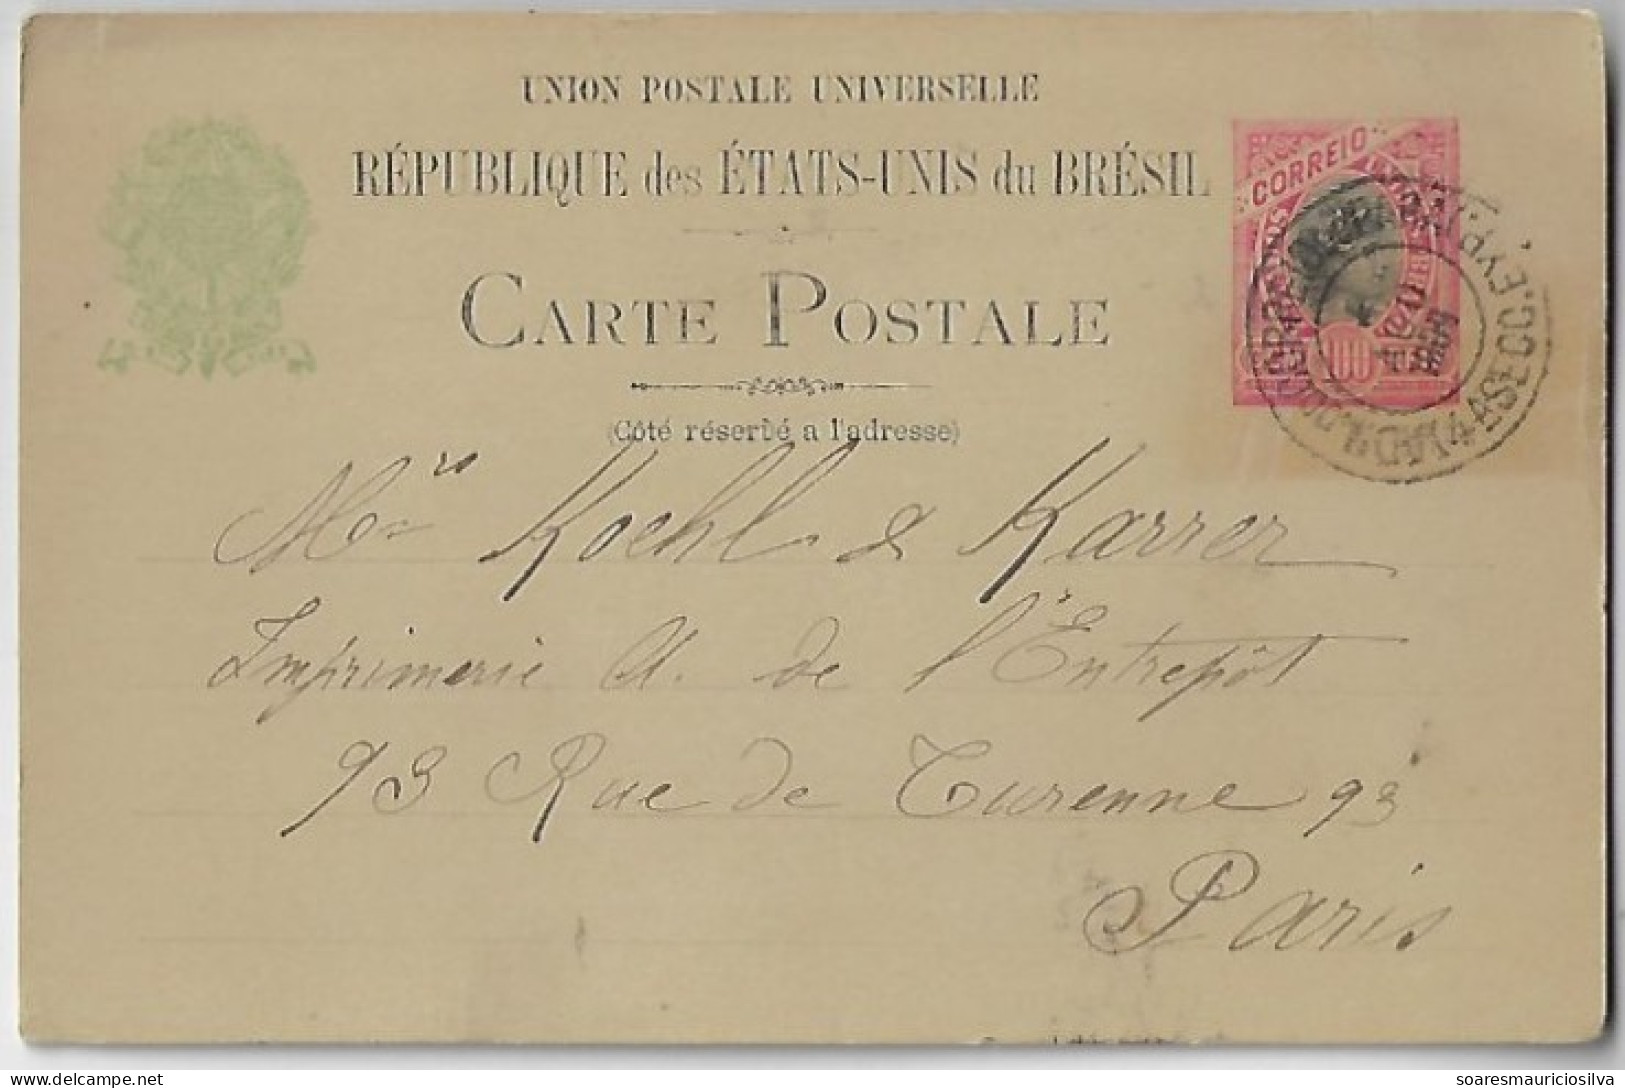 UNION POSTALE UNIVERSELLE
RÉPUBLIQUE des ÉTATS-UNIS du BRÉSIL
CORREIO
CARTE POSTALE
100
4ª SECÇ.
(Côté réservé a l'adresse)
Mrs Koehl & Karrer
Imprimerie A. de l'Entrepôt
93 Rue de Turenne 93
Paris
soaresmauriciosilva